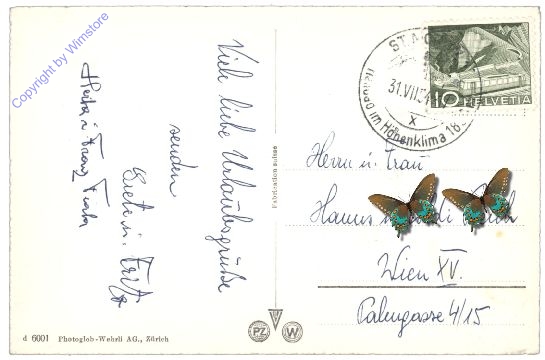 Copyright by Wimstore
Viele liebe Urlaubsgrüße
senden
ST. MO
31.VII.54
Heilbad im Höhenklima 18
x
10 HELVETIA
Fabrication suisse
Herrn u. Frau
Hanns
Wien XV.
Palmgasse 4/15
d 6001 Photoglob-Wehrli AG., Zürich
PZ W